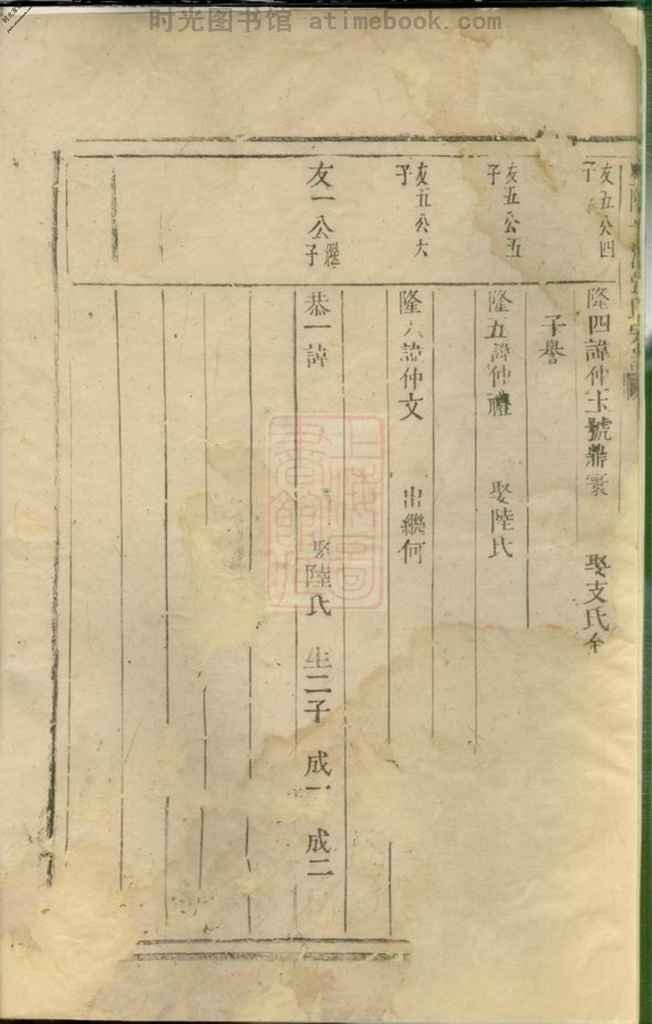 时光图书馆 atimebook.com
友五公四
子
隆四諱仲玉號鼎
娶支氏
子譽
友五公五
子
隆五諱仲禮
娶陸氏
友五公六
子
隆六諱仲文
出繼何
友一公
繼子
恭一諱
娶陸氏
生二子
成一
成二